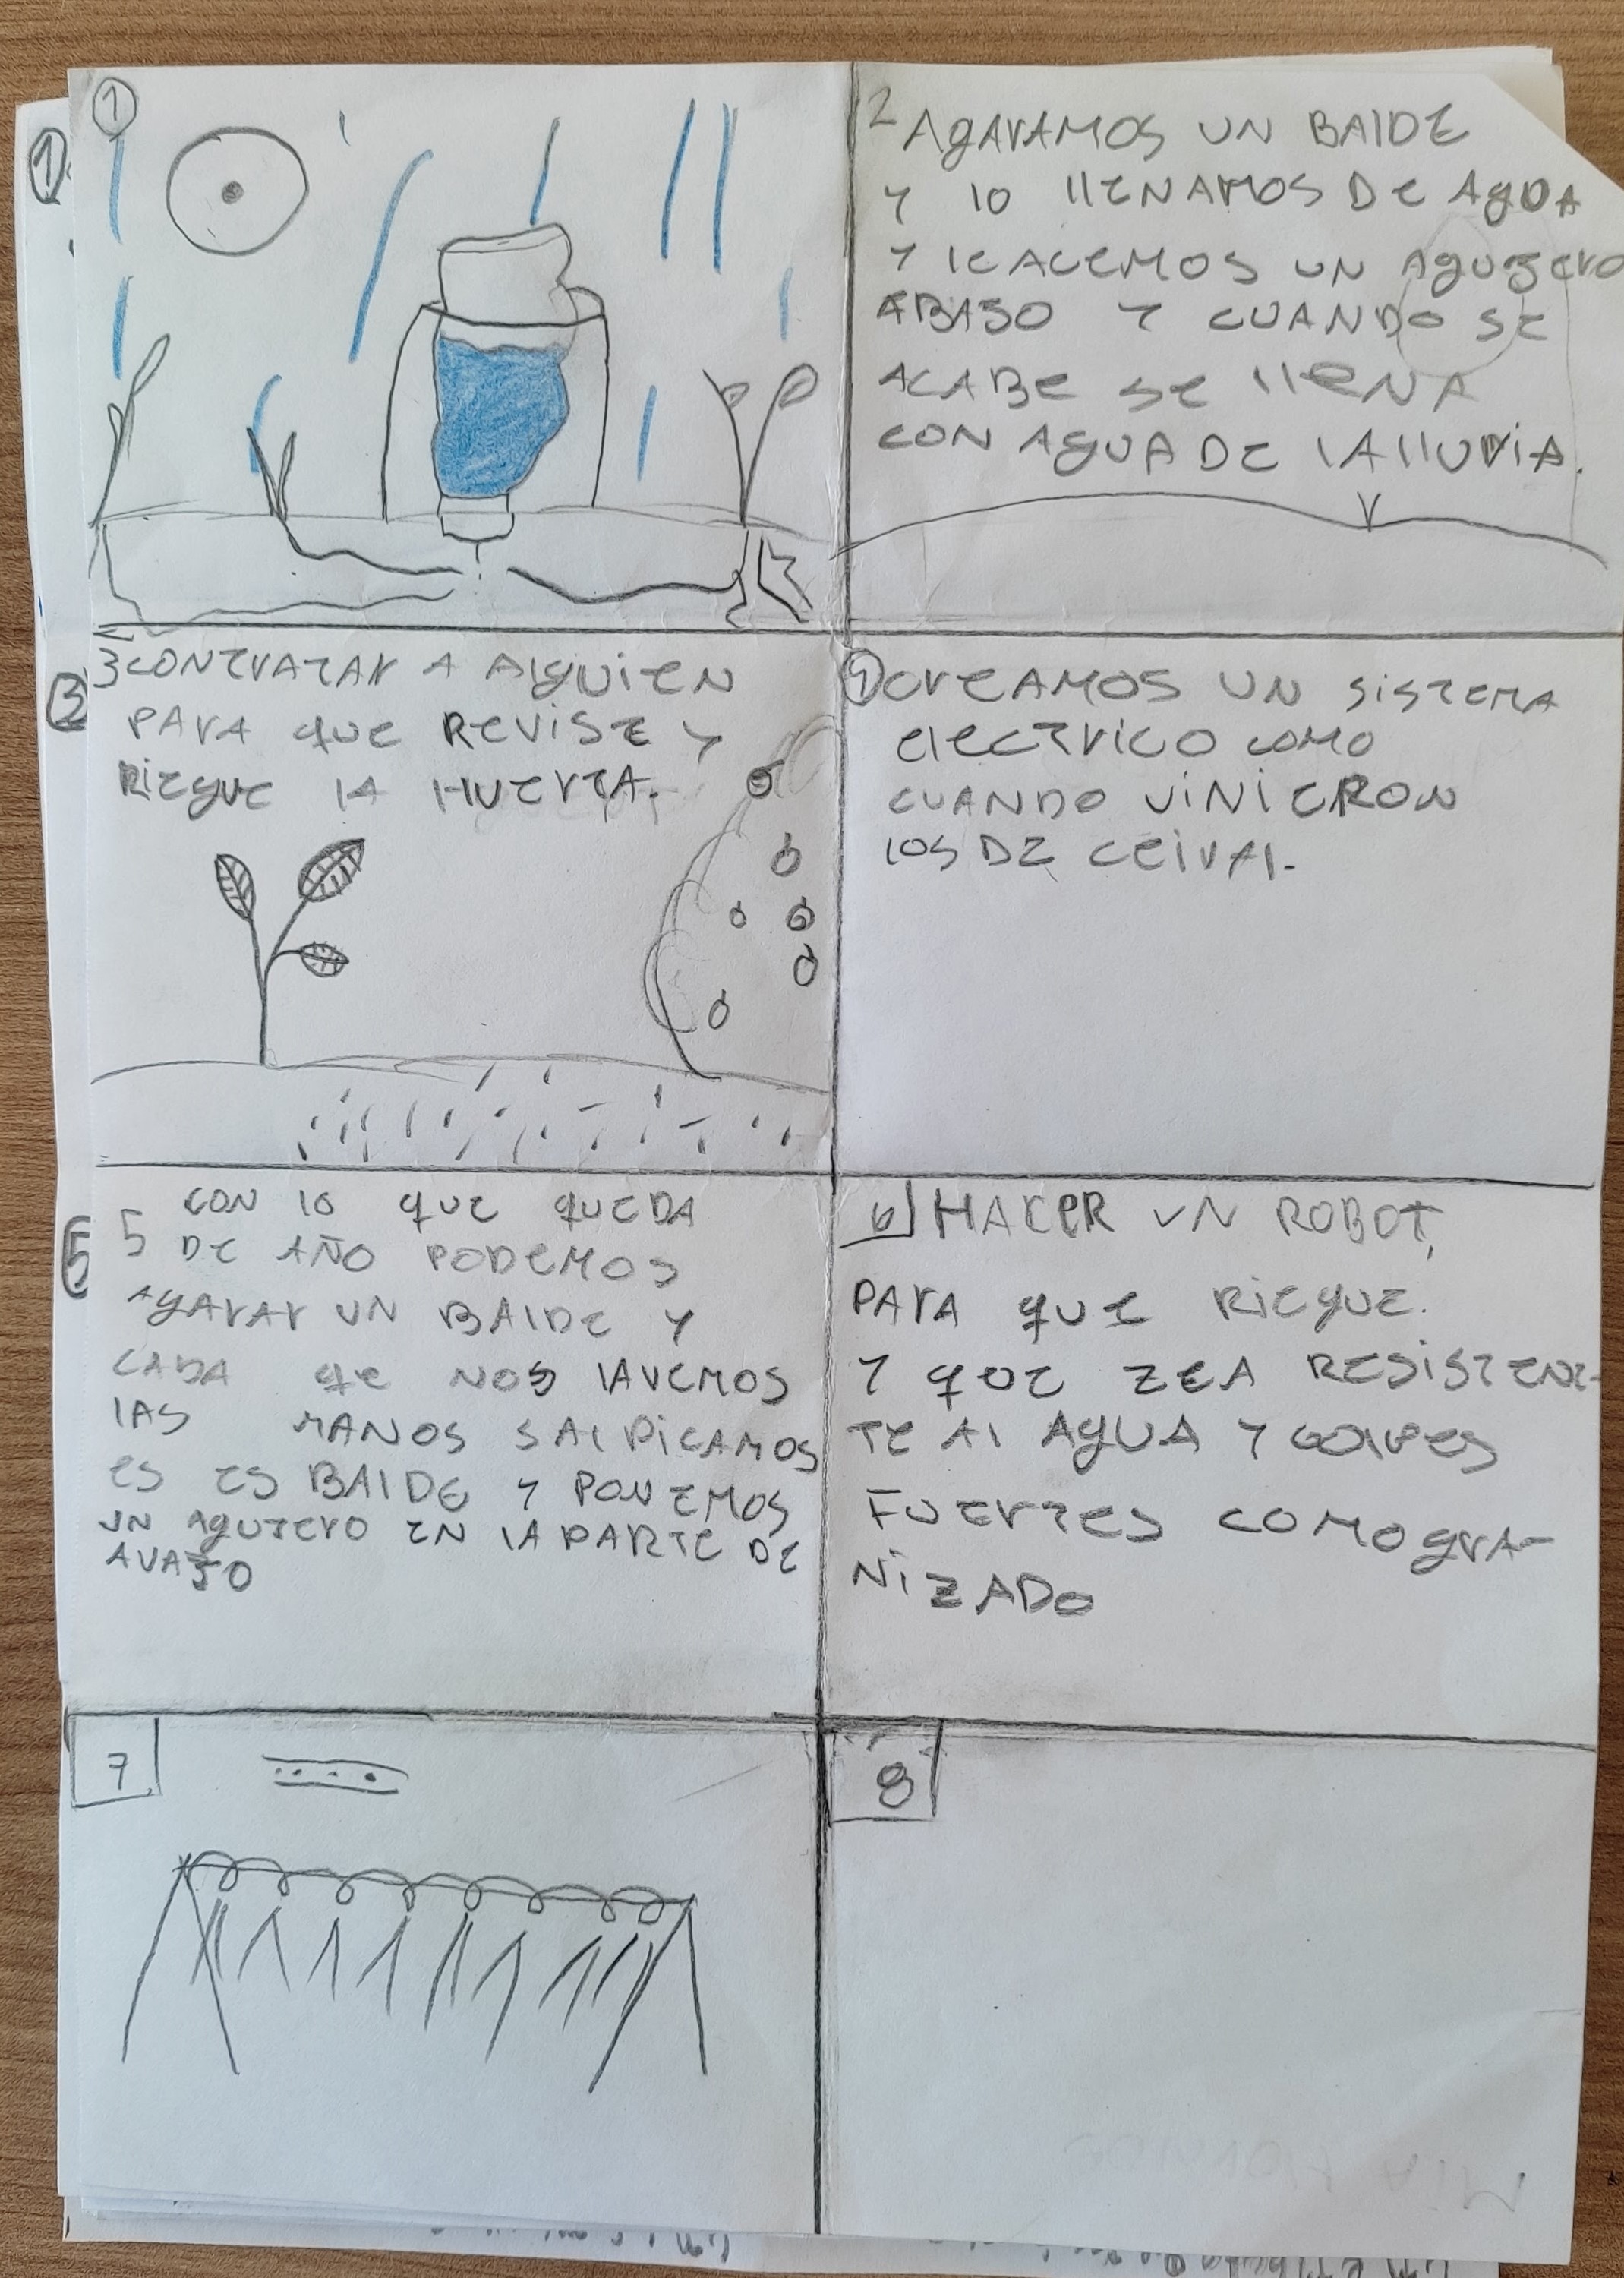 1
1
2 AgARAMOS UN BAlDE
Y lo llENAMOS DE AgUA
Y lEACEMOS UN AgUJERO
ABAJO Y CUANDO SE
ACABE SE llENA
CON AgUA DE lAllUVIA.
3
3 CONTRATAR A AlgUIEN
PARA qUE REVISE Y
RIEgUE lA HUERTA.
CREAMOS UN SISTEMA
ElECTRICO COMO
CUANDO VINIERON
lOS DE CEIVAl.
CON lO qUE qUEDA
5 DE AÑO PODEMOS
AgARAR UN BAlDE Y
CADA qe NOS lAVEMOS
lAS MANOS SAlPICAMOS
ES ES BAlDE Y PONEMOS
UN AgUJERO EN lA PARTE DE
AVAJO
6 HACER UN ROBOT,
PARA qUE RIEgUE.
Y qUE ZEA RESISTEN-
TE Al AgUA Y GOlPES
FUERTES COMO gRA-
NIZADO
7
8